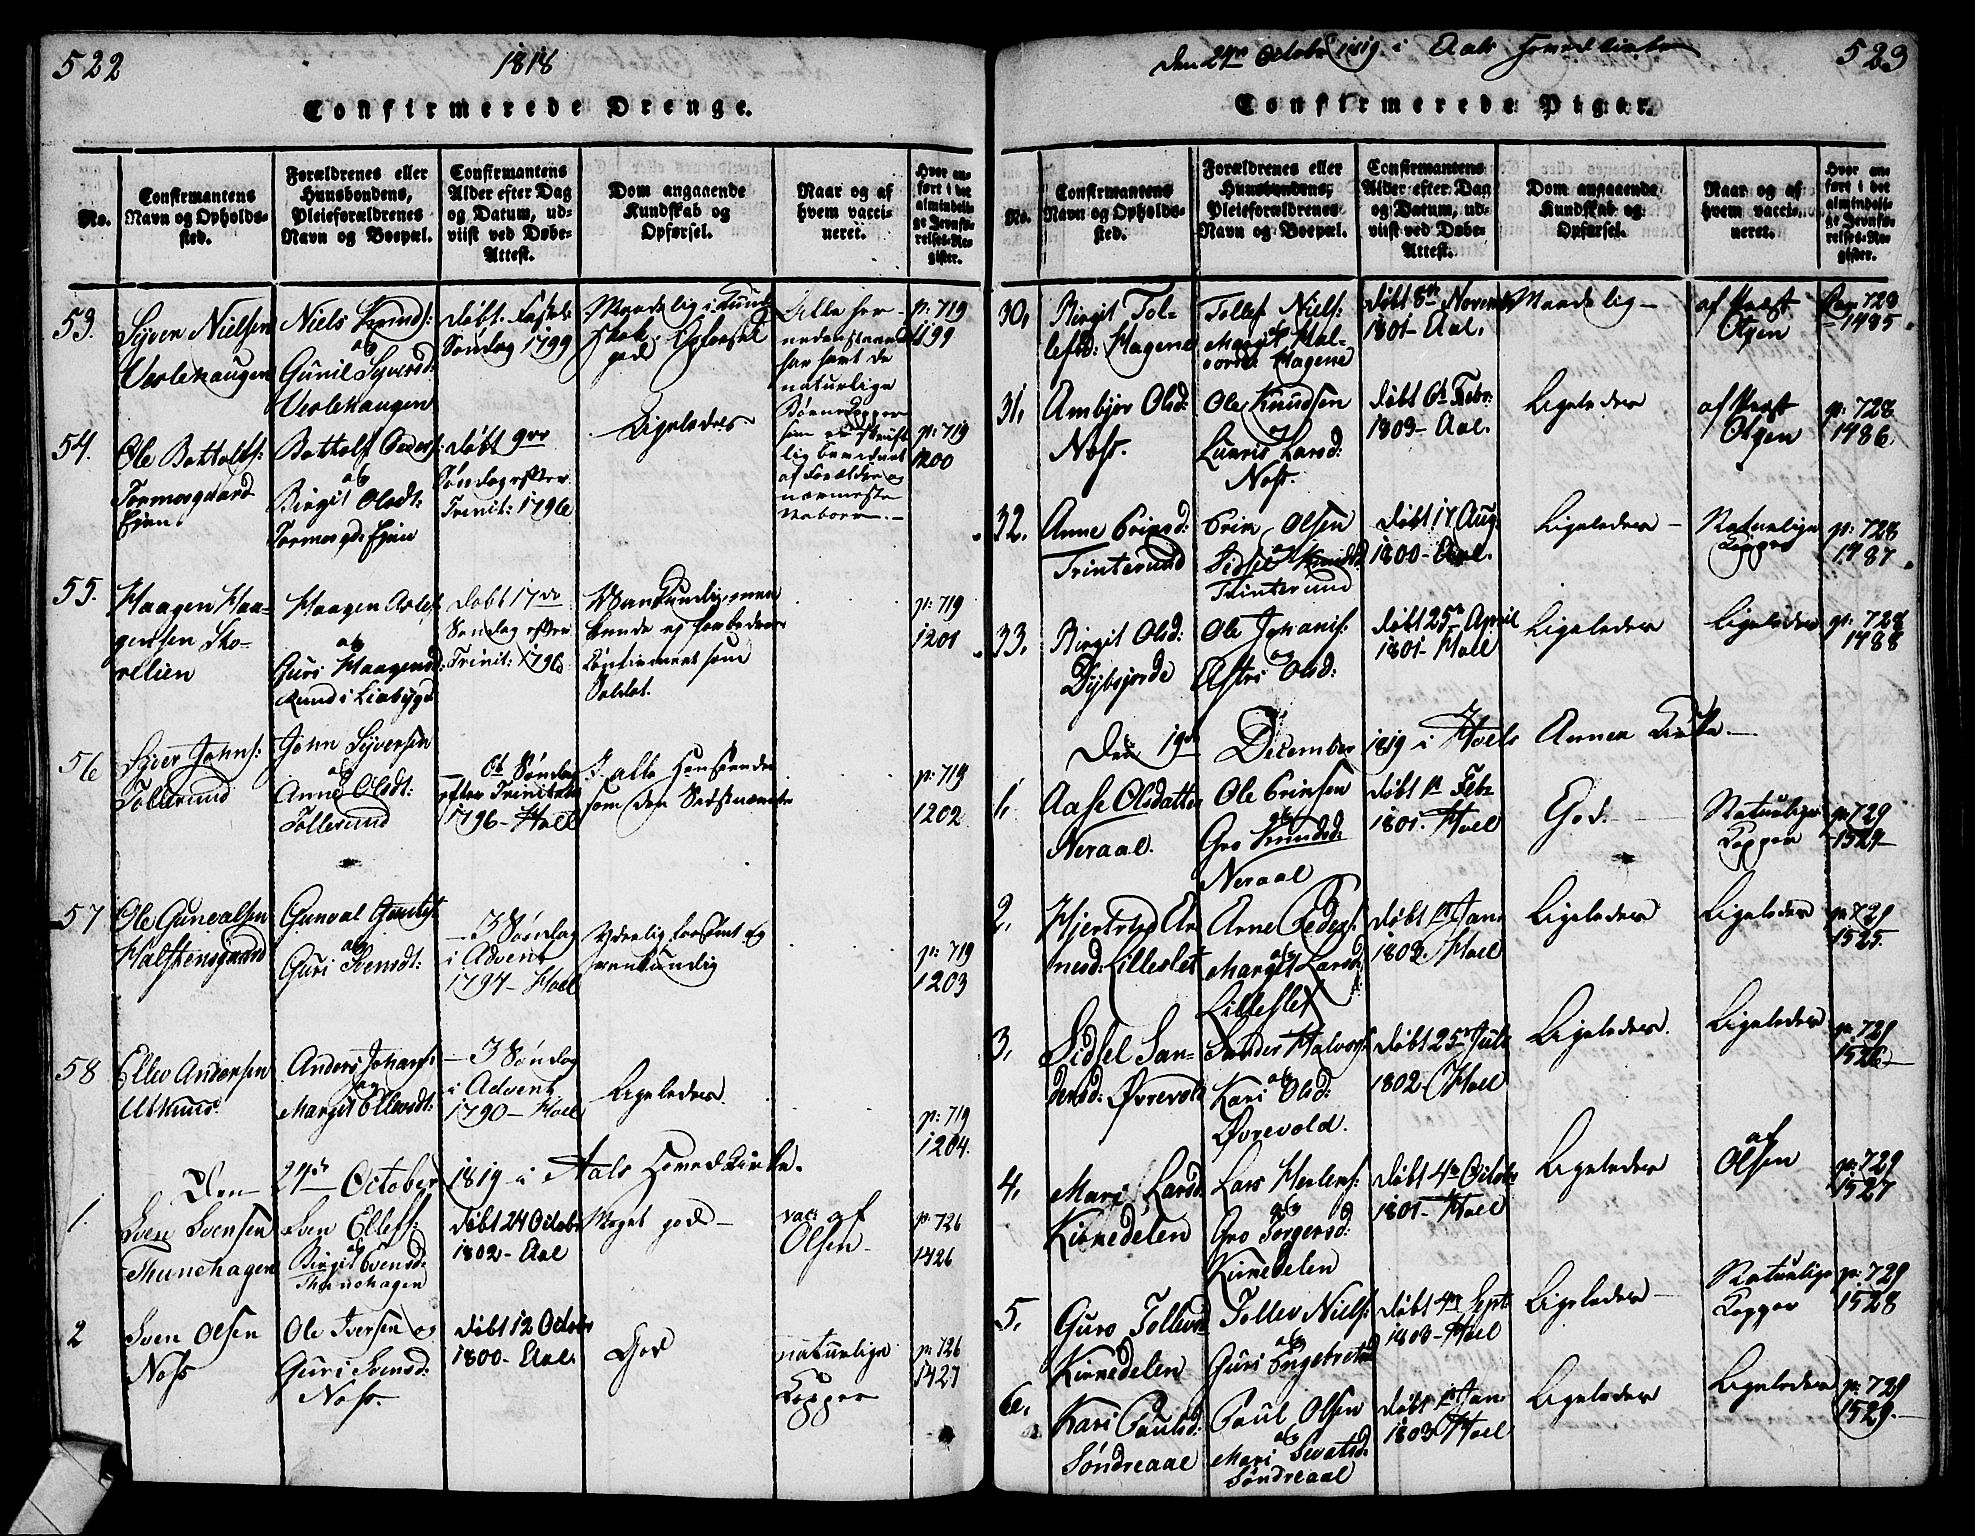 522
1818
Confirmerede Drenge.
No.
Confirmantens
Navn og Opholds-
sted.
Forældrenes eller
Huusbondens,
Pleieforældrenes
Navn og Boepæl.
Confirmantens
Alder efter Dag
og Datum, ud-
viist ved Døbe-
Attest.
Dom angaaende
Kundskab og
Opførsel.
Naar og af
hvem vacci-
neret.
Hvor an-
ført i det
almindeli-
ge Jevnfø-
relses-Re-
gister.
53.
Syver Nielsen
Veslehaugen
Niels
og
Gunil Syversd:
Veslehaugen
døbt Fastel:
Søndag 1799
Maadelig i Kund-
skab. Opførsel
god
Alle her-
nedenstaaende
har havt de
naturlige
Børnekopper
som er skrift-
lig bevidnet
af Forældre og
nærmeste
Naboer.-
p: 719
1199
54.
Ole Bottolfs:
Tormosgaard
Ejen
Bottolf
og
Birgit Olsdt:
Tormosgd: Ejen
døbt 9de
Søndag efter
Trinit: 1796
Ligeledes
p: 719
1200
55.
Haagen Haa-
gensen Sko-
relien
Haagen Asles:
og
Guri Haagensd:
døbt 17de
Søndag efter
Trinit: 1796
Vankundig, men
kunde ej forbedres
Confirmeret som
Soldat.
p: 719
1201
56
Syver Johns:
Tollerud
John Syversen
og
Anne Olsdt:
Tollerud
6t Søndag
efter Trinitatis
1796 - Hoel
I alle Henseender
som den Næstnævnte
p: 719
1202
57
Ole Gunvalsen
Halstensgaard
Gunval
og
Guri Svensdt:
- 3 Søndag
i Advent
1797 - Hoel
Yderlig forsømt og
vankundig
p: 719
1203
58
Ellev Andersen
Uthuus
Anders Johans:
og
Margit Ellevsdt:
- 3 Søndag
i Advent
1790 - Hoel
Ligeledes
p: 719
1204.
Den 24de October 1819 i Aals Hovedkirke.
1.
Sven Svensen
Thunehagen
Sven Ellefs:
og
Birgit Evensd:
Thunehagen
døbt 24 Octobr
1802 - Aal
Meget god -
vac: af
Olsen -
p: 726
1426
2
Sven Olsen
Noss
Ole Iversen og
Guri Svensd:
Noss.
døbt 12 Octobr
1800 - Aal.
God
naturlige
Kopper
p: 726
1427
Den 24de Octobr 1819 i Aals Hovedkirke
523
Confirmerede Piger.
No.
Confirmantens
Navn og Opholds-
sted.
Forældrenes eller
Huusbondens,
Pleieforældrenes
Navn og Boepæl.
Confirmantens
Alder efter Dag
og Datum, ud-
viist ved Døbe-
Attest.
Dom angaaende
Kundskab og
Opførsel.
Naar og af
hvem vacci-
neret.
Hvor an-
ført i det
almindeli-
ge Jevnfø-
relses-Re-
gister.
30,
Birgit Tol-
lefsd: Hagene
Tollef Niels:
og
Margit Hal-
vorsd: Hagene
døbt 8de Novemb
1801 - Aal.
Maadelig -
af Præst
Olsen
Pag 728
1485.
31,
Ambjør Olsd:
Noss.
Ole Knudsen
og
Lunris Larsd:
Noss.
døbt 6te Febr:
1803 - Aal.
Ligeledes
af Præst
Olsen
p: 728
1486
32.
Anne Erixsd:
Trinterud
Erix Olsen
og
Sidsel Knudsd
Trinterud
døbt 17 Aug
1800 - Aal.
Ligeledes -
Naturlige
Kopper
p: 728
1487.
33.
Birgit Olsd:
Dybsjorde
Ole Johanis:
og
Astri Olsd:
døbt 25de April
1801 - Hoel
Ligeledes
Ligeledes
p: 728
1488
Den 19de December 1819 i Hoels Annex Kirke -
1,
Aase Olsdatter
Neraal.
Ole Erixsen
og
Gro Knudsd:
Neraal
døbt 1te Febr
1801. Hoel
God. -
Naturlige
Kopper
p: 729
1524
2,
Hjertrud Ar-
nesd: Lilleslet
Arne Peders:
og
Margit Larsd:
Lilleslet
døbt 1te Jan:
1803. Hoel
Ligeledes
Ligeledes
p: 729
1525.
3,
Sidsel San-
dersd: Øvrevold
Sander Halvors:
og
Kari Olsd:
Øvrevold.
døbt 25de Juli
1802 - Hoel
Ligeledes.
Ligeledes
p: 729
1526 -
4,
Mari Larsd:
Kirkedelen
Lars Herlens:
og
Gro Torgersd:
Kirkedelen
døbt 4de Octobr
1801 - Hoel
Ligeledes
af
Olsen
p: 729
1527
5,
Guro Tollevsd
Kirkedelen
Tollev Niels:
og
Guri Engebretsd
døbt 4de Sept:
1803 - Hoel
Ligeledes -
Naturlige
Kopper
p: 729
1528
6.
Kari Paulsd:
Søndreaal
Paul Olsen
og
Mari Sevatsd:
Søndreaal
døbt 1te Jan
1803 Hoel
Ligeledes
Ligeledes
p: 729
1529. -